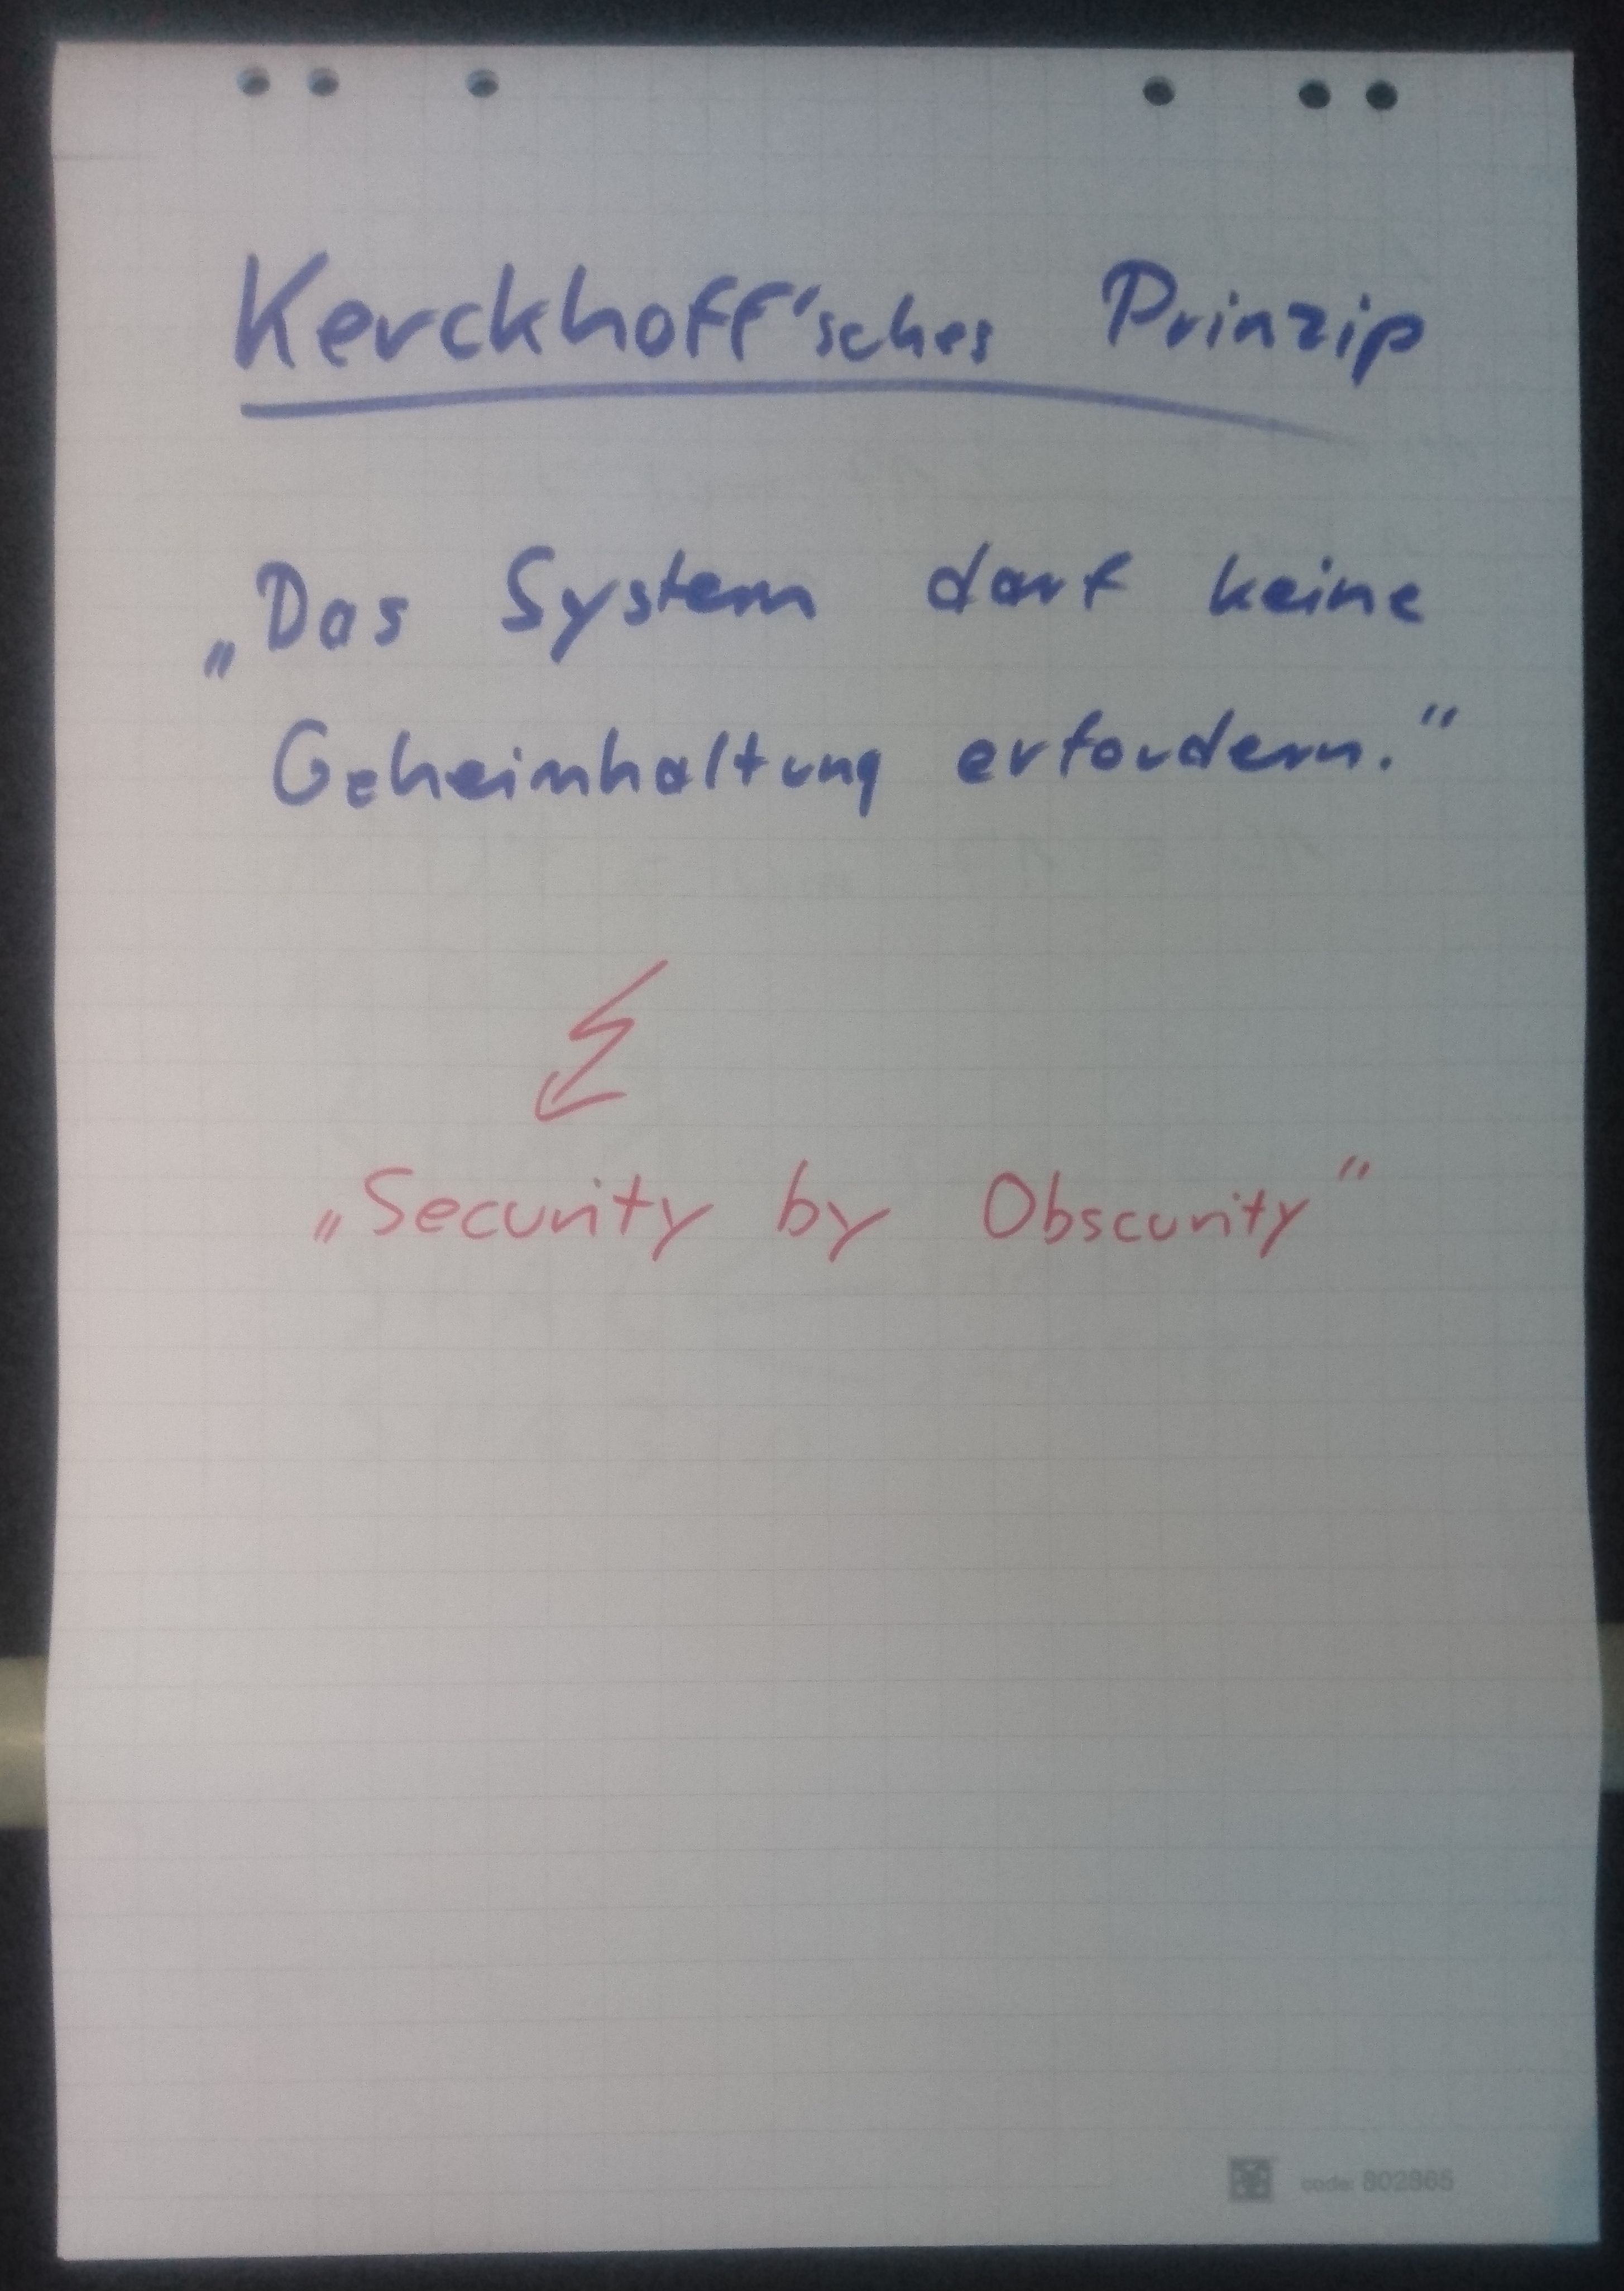 Kerckhoff'sches Prinzip
„Das System darf keine
Geheimhaltung erfordern.“
„Security by Obscurity“
code: 802865